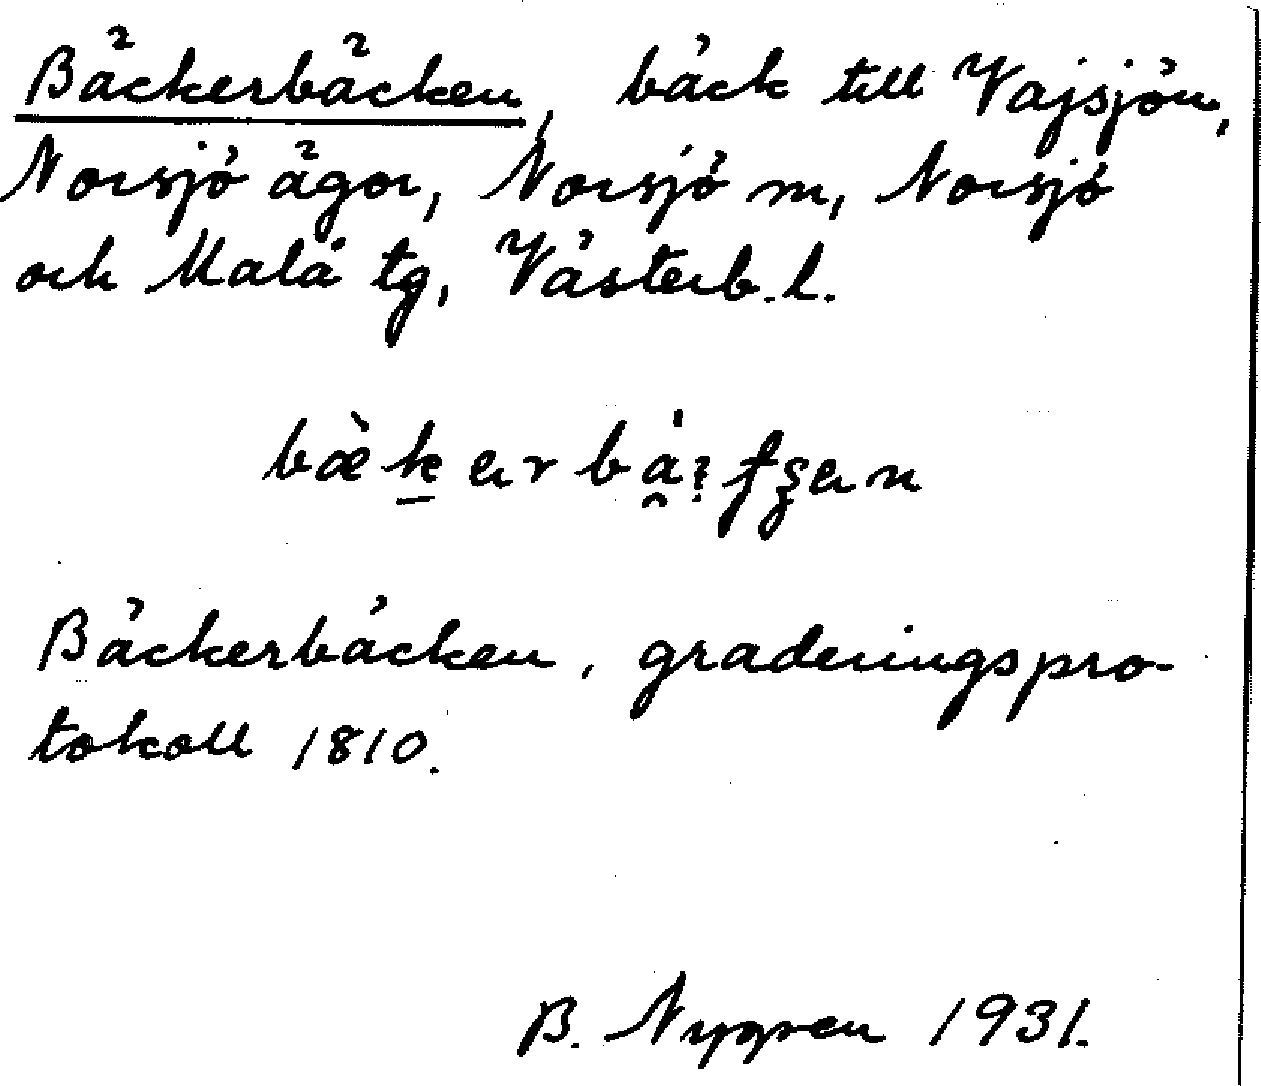 Bäckerbäcken, bäck till Vajsjön,
Norsjö ägor, Norsjö sn, Norsjö
och Malå tg, Västerb.l.
Bäckerbäcken, graderingspro-
tokoll 1810.
B. Nygren 1931.